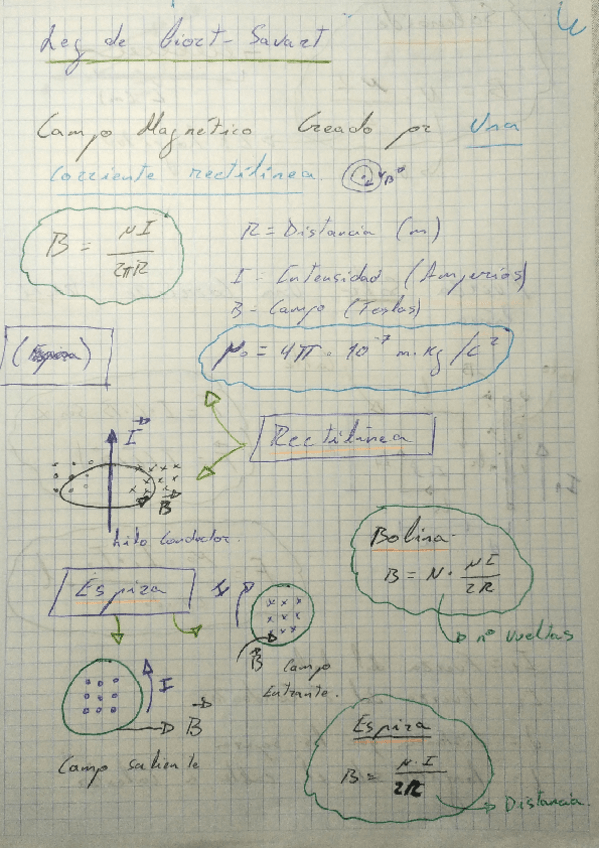 Ley de Biort-Savart
Campo Magnético Creado por Una
Corriente rectilínea.
B = μI / 2πR
R = Distancia (m)
I = Intensidad (Amperios)
B = Campo (Teslas)
μ₀ = 4π · 10⁻⁷ m·Kg/C²
Rectilínea
I
B
hilo conductor.
Espira
Bobina
B = N · μI / 2R
nº vueltas
B Campo
Entrante.
I
B
Campo saliente
Espira
B = μ·I / 2R
Distancia.